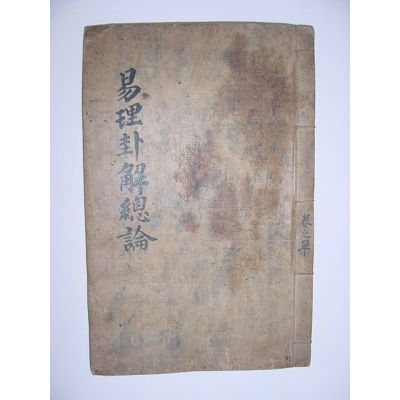 易理卦解總論
卷之單